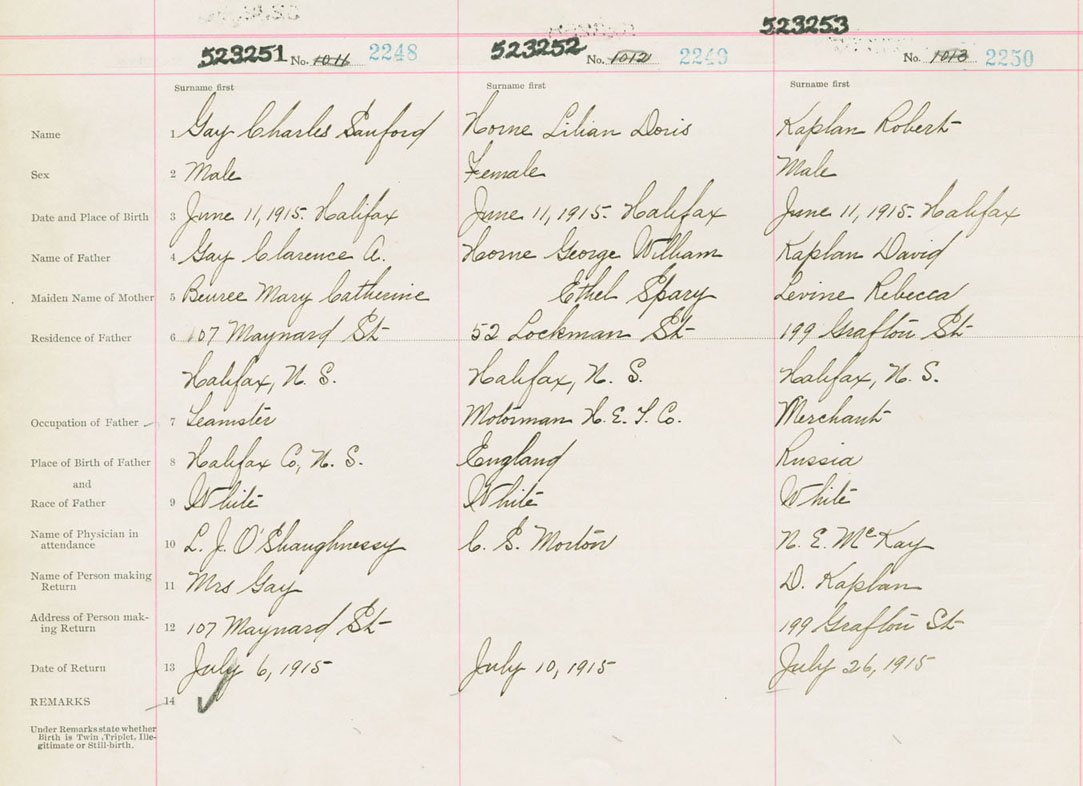 523253
523251 No. 1011 2248 523252 No. 1012 2249 No. 1013 2250
Surname first Surname first Surname first
Name 1 Gay Charles Sanford Horne Lilian Doris Kaplan Robert
Sex 2 Male Female Male
Date and Place of Birth 3 June 11, 1915. Halifax June 11, 1915. Halifax June 11, 1915. Halifax
Name of Father 4 Gay Clarence A. Horne George William Kaplan David
Maiden Name of Mother 5 Mary Catherine Ethel Spary Levine Rebecca
Residence of Father 6 107 Maynard St 52 Lockman St 199 Grafton St
Halifax, N. S. Halifax, N. S. Halifax, N. S.
Occupation of Father 7 Teamster Motorman H. E. T. Co. Merchant
Place of Birth of Father 8 Halifax Co, N. S. England Russia
and
Race of Father 9 White White White
Name of Physician in
attendance 10 L. J. O'Shaughnessy C. S. Morton N. E. McKay
Name of Person making
Return 11 Mrs Gay D. Kaplan
Address of Person mak-
ing Return 12 107 Maynard St 199 Grafton St
Date of Return 13 July 6, 1915 July 10, 1915 July 26, 1915
REMARKS 14
Under Remarks state whether
Birth is Twin, Triplet, Ille-
gitimate or Still-birth.